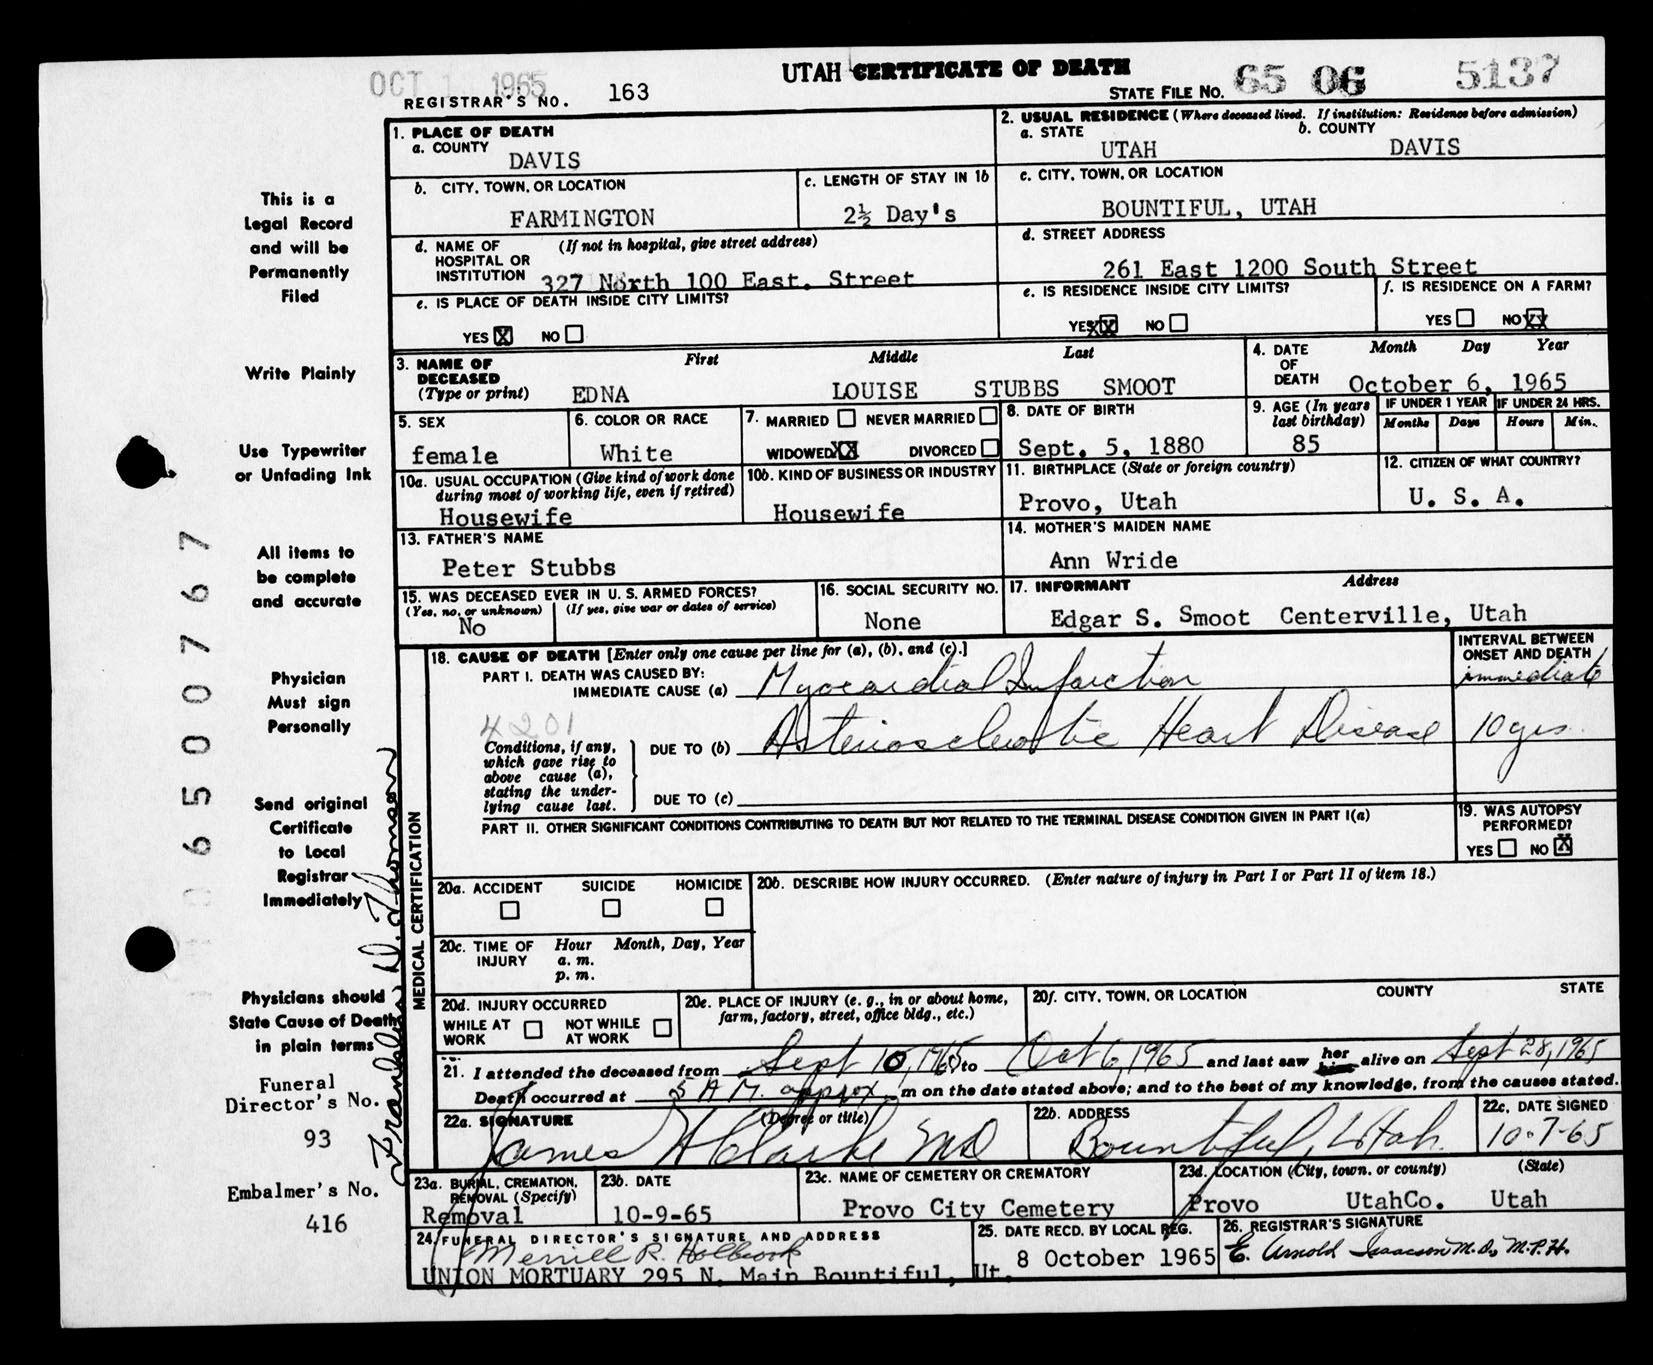 OCT 1965
UTAH CERTIFICATE OF DEATH
REGISTRAR'S NO. 163
STATE FILE NO. 65 06 5137
1. PLACE OF DEATH
a. COUNTY
DAVIS
2. USUAL RESIDENCE (Where deceased lived. If institution: Residence before admission)
a. STATE b. COUNTY
UTAH DAVIS
b. CITY, TOWN, OR LOCATION
FARMINGTON
c. LENGTH OF STAY IN 1b
2½ Day's
c. CITY, TOWN, OR LOCATION
BOUNTIFUL, UTAH
d. NAME OF (If not in hospital, give street address)
HOSPITAL OR
INSTITUTION 327 North 100 East. Street
d. STREET ADDRESS
261 East 1200 South Street
e. IS PLACE OF DEATH INSIDE CITY LIMITS?
YES X NO
e. IS RESIDENCE INSIDE CITY LIMITS?
YES XX NO
f. IS RESIDENCE ON A FARM?
YES NO XX
3. NAME OF First Middle Last
DECEASED
(Type or print) EDNA LOUISE STUBBS SMOOT
4. DATE Month Day Year
OF
DEATH October 6, 1965
5. SEX
female
6. COLOR OR RACE
White
7. MARRIED NEVER MARRIED
WIDOWED XX DIVORCED
8. DATE OF BIRTH
Sept. 5, 1880
9. AGE (In years
last birthday)
85
IF UNDER 1 YEAR IF UNDER 24 HRS.
Months Days Hours Min.
10a. USUAL OCCUPATION (Give kind of work done
during most of working life, even if retired)
Housewife
10b. KIND OF BUSINESS OR INDUSTRY
Housewife
11. BIRTHPLACE (State or foreign country)
Provo, Utah
12. CITIZEN OF WHAT COUNTRY?
U. S. A.
13. FATHER'S NAME
Peter Stubbs
14. MOTHER'S MAIDEN NAME
Ann Wride
15. WAS DECEASED EVER IN U. S. ARMED FORCES?
(Yes, no, or unknown) (If yes, give war or dates of service)
No
16. SOCIAL SECURITY NO.
None
17. INFORMANT Address
Edgar S. Smoot Centerville, Utah
MEDICAL CERTIFICATION
18. CAUSE OF DEATH [Enter only one cause per line for (a), (b), and (c).]
INTERVAL BETWEEN
ONSET AND DEATH
PART I. DEATH WAS CAUSED BY:
IMMEDIATE CAUSE (a) Myocardial Infarction immediate
4201
Conditions, if any,
which gave rise to
above cause (a),
stating the under-
lying cause last.
DUE TO (b) Arteriosclerotic Heart Disease 10 yrs.
DUE TO (c)
PART II. OTHER SIGNIFICANT CONDITIONS CONTRIBUTING TO DEATH BUT NOT RELATED TO THE TERMINAL DISEASE CONDITION GIVEN IN PART I(a)
19. WAS AUTOPSY
PERFORMED?
YES NO X
20a. ACCIDENT SUICIDE HOMICIDE
20b. DESCRIBE HOW INJURY OCCURRED. (Enter nature of injury in Part I or Part II of item 18.)
20c. TIME OF Hour Month, Day, Year
INJURY a. m.
p. m.
20d. INJURY OCCURRED
WHILE AT NOT WHILE
WORK AT WORK
20e. PLACE OF INJURY (e. g., in or about home,
farm, factory, street, office bldg., etc.)
20f. CITY, TOWN, OR LOCATION COUNTY STATE
21. I attended the deceased from Sept 10, 1965 to Oct 6, 1965 and last saw her him alive on Sept 28, 1965
Death occurred at 5 A M. approx m on the date stated above; and to the best of my knowledge, from the causes stated.
22a. SIGNATURE (Degree or title)
James H Clarke MD
22b. ADDRESS
Bountiful, Utah.
22c. DATE SIGNED
10-7-65
23a. BURIAL, CREMATION,
REMOVAL (Specify)
Removal
23b. DATE
10-9-65
23c. NAME OF CEMETERY OR CREMATORY
Provo City Cemetery
23d. LOCATION (City, town, or county) (State)
Provo UtahCo. Utah
24. FUNERAL DIRECTOR'S SIGNATURE AND ADDRESS
Merrill R. Holbrook
UNION MORTUARY 295 N. Main Bountiful, Ut.
25. DATE RECD. BY LOCAL REG.
8 October 1965
26. REGISTRAR'S SIGNATURE
E. Arnold Isaacson M.D., M.P.H.
This is a
Legal Record
and will be
Permanently
Filed
Write Plainly
Use Typewriter
or Unfading Ink
All items to
be complete
and accurate
Physician
Must sign
Personally
Send original
Certificate
to Local
Registrar
Immediately
Physicians should
State Cause of Death
in plain terms
Funeral
Director's No.
93
Embalmer's No.
416
D. Thomson
06500767